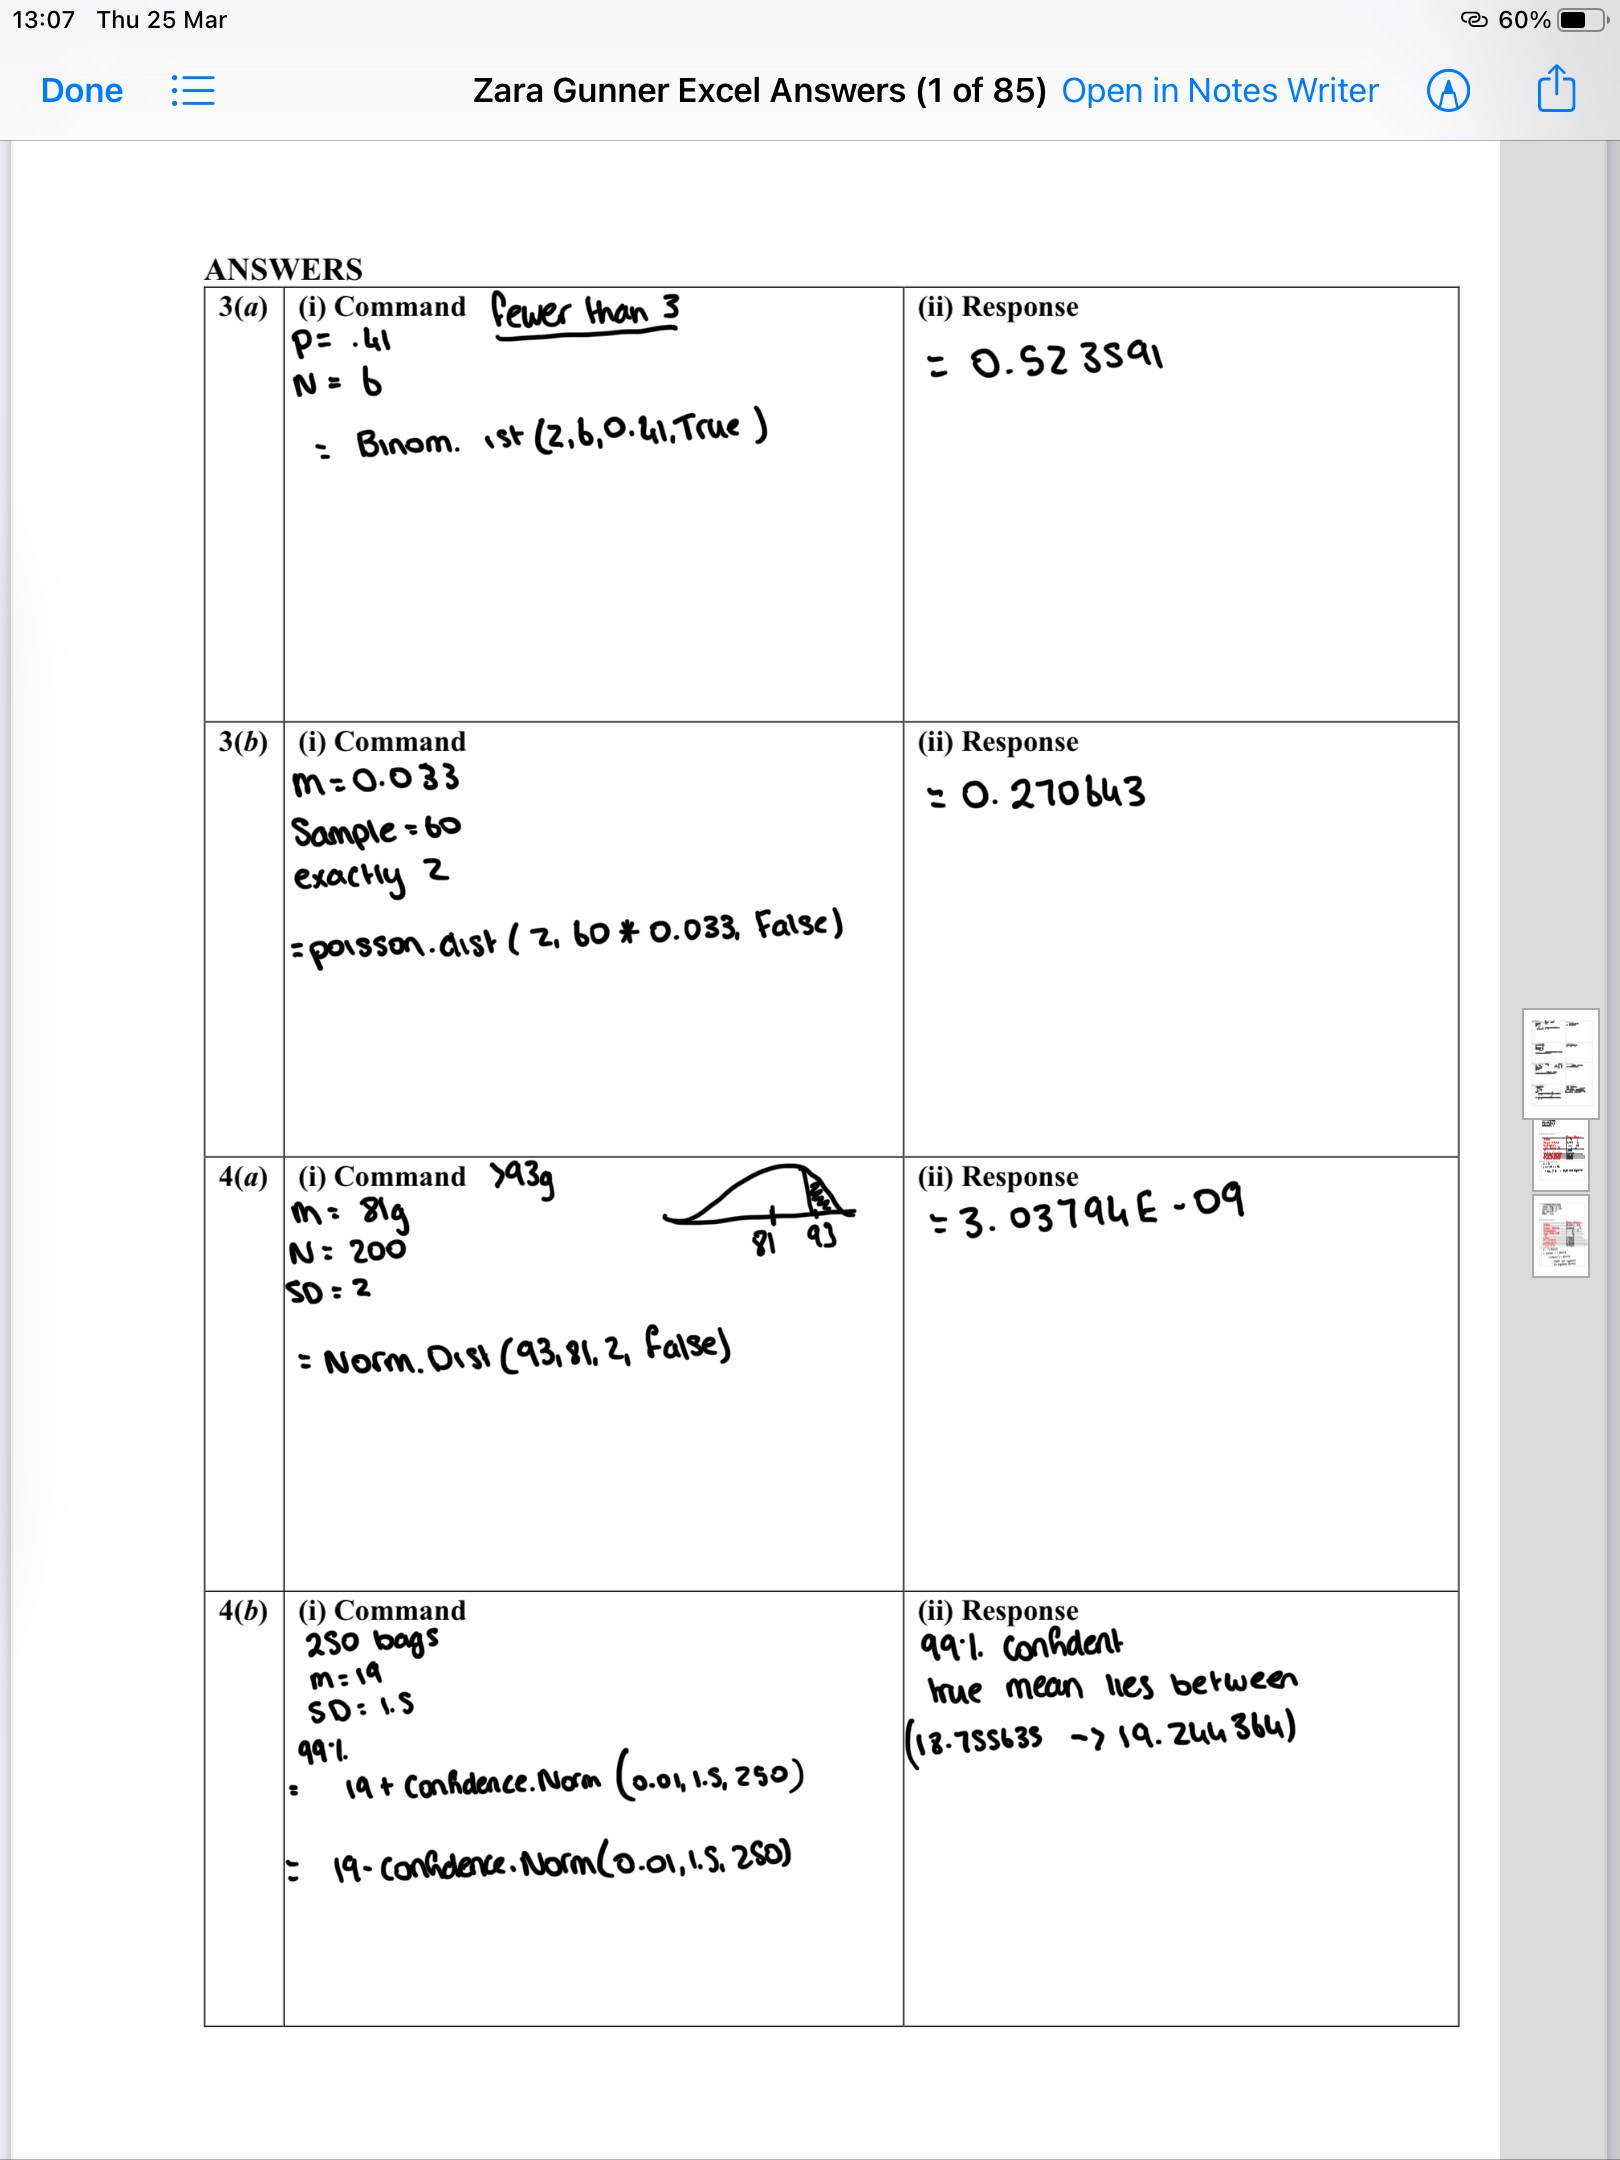 13:07 Thu 25 Mar
60%
Done
Zara Gunner Excel Answers (1 of 85)
Open in Notes Writer
ANSWERS
3(a) (i) Command fewer than 3
P= .41
N = 6
= Binom. ist (2,6,0.41,True )
(ii) Response
= 0.523591
3(b) (i) Command
m=0.033
Sample = 60
exactly 2
=poisson.dist ( 2, 60 * 0.033, False)
(ii) Response
= 0.270643
4(a) (i) Command >93g
m= 81g
N= 200
SD = 2
81 93
= Norm.Dist (93,81,2, false)
(ii) Response
= 3.03794E-09
4(b) (i) Command
250 bags
m=19
SD= 1.5
99%
= 19 + Confidence.Norm (0.01,1.5,250)
= 19-confidence.Norm(0.01,1.5,250)
(ii) Response
99% confident
true mean lies between
(18.755635 -> 19.244364)